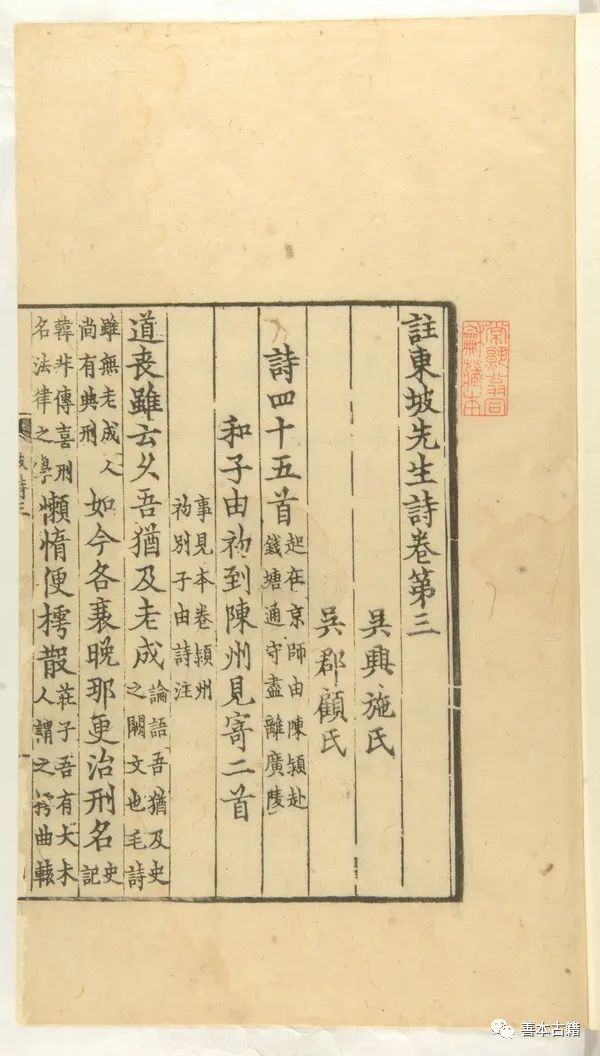 常熟翁同
龢藏本
註東坡先生詩卷第三
吳興施氏
吳郡顧氏
詩四十五首起在京師由陳潁赴錢塘通守盡離廣陵
和子由初到陳州見寄二首
事見本卷潁州初別子由詩注
道喪雖云久吾猶及老成論語吾猶及史之闕文也毛詩
雖無老成人尚有典刑如今各衰晚那更治刑名史記
韓非傳喜刑名法律之學懶惰便樗散莊子吾有大木人謂之樗曲轅
善本古籍